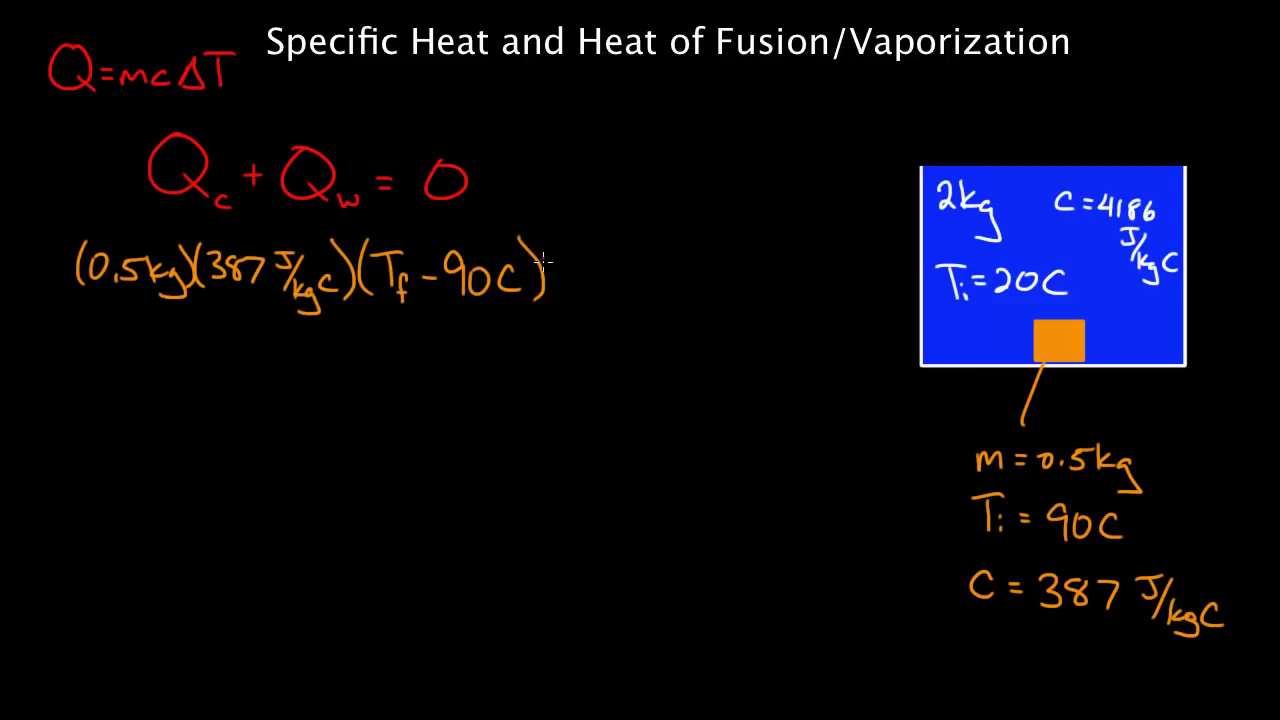 Specific Heat and Heat of Fusion/Vaporization
Q=mcΔT
Qc + Qw = 0
(0.5kg)(387 J/kgC)(Tf - 90C)
2kg
C=4186
J/kgC
Ti=20C
m=0.5kg
Ti=90C
C=387 J/kgC